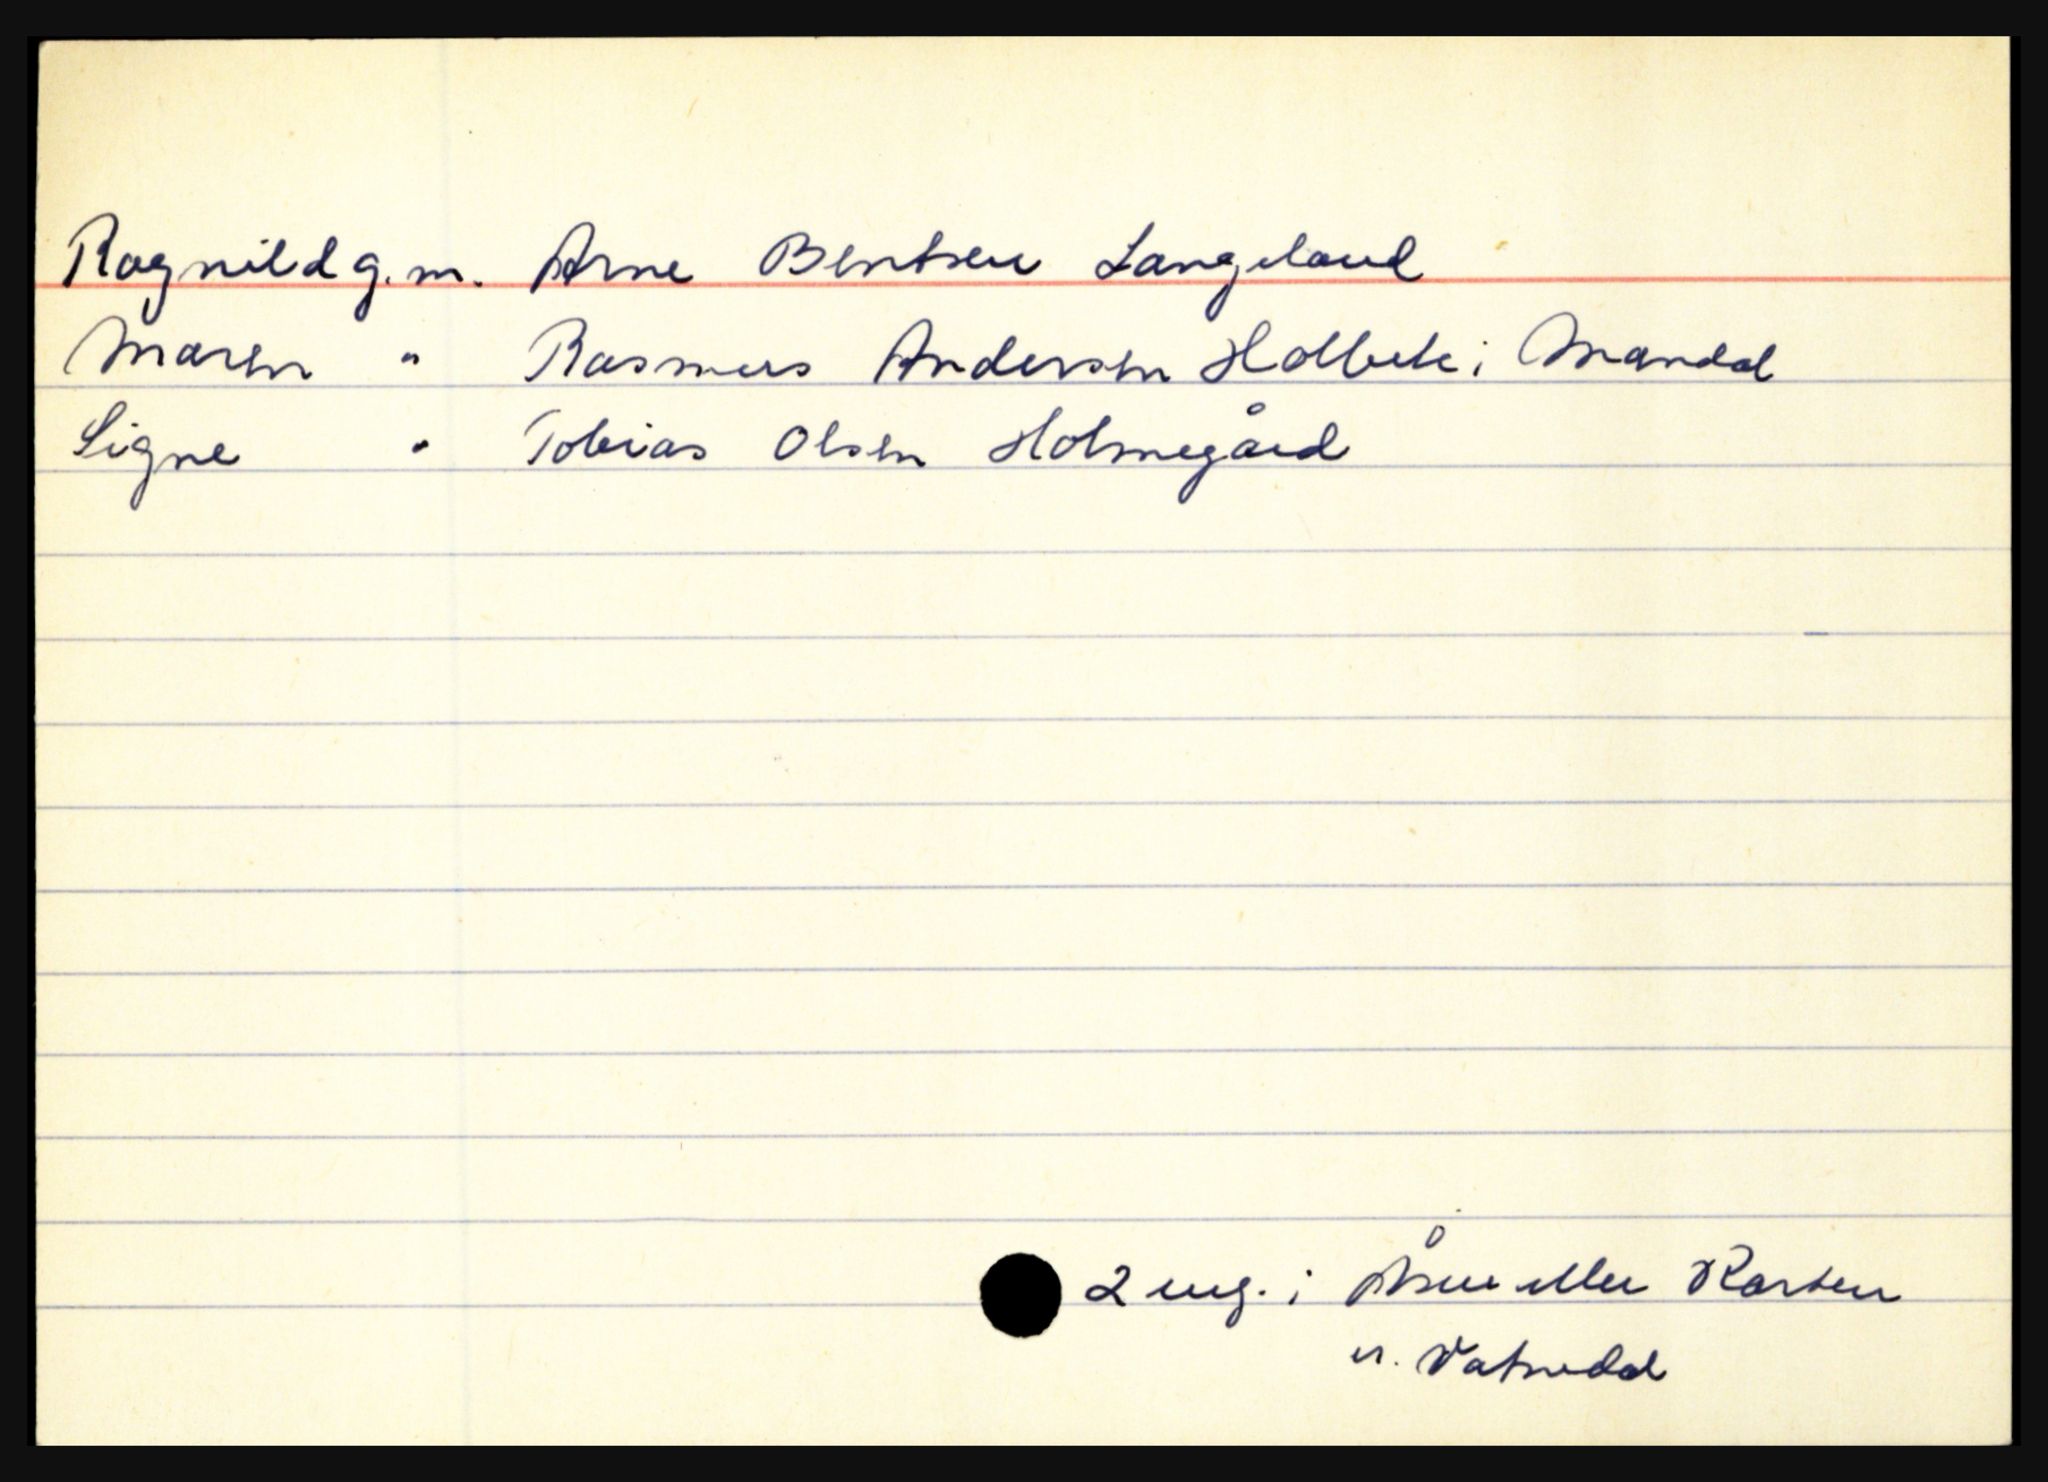 Ragnild g.m. Arne Bentsen Langeland
Maren " Rasmus Andersen Holbek i Mandal
Signe " Tobias Olsen Holmegård
2 ug. i Åsen eller Karsten
u. Vatnedal